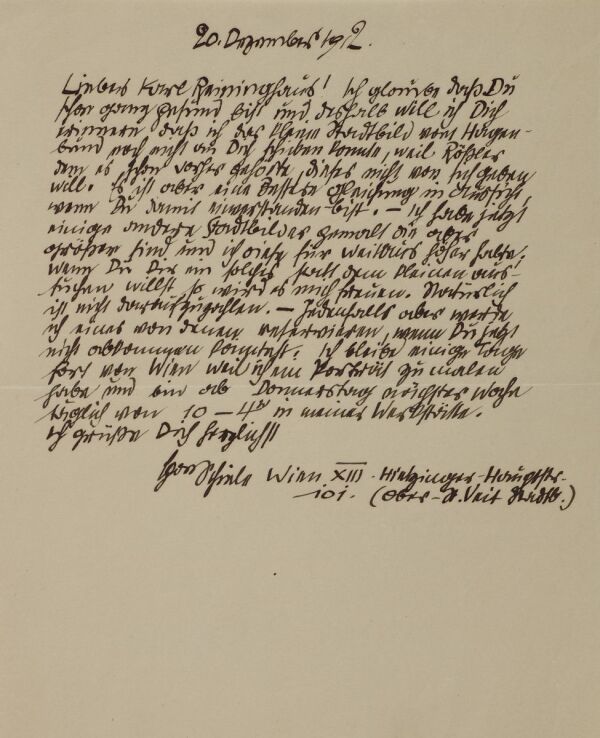 20. Dezember 1912.
Lieber Karl Reininghaus! Ich glaube daß Du
schon ganz gesund bist und deshalb will ich Dich
erinnern daß ich das kleine Stadtbild vom Hagen-
bund noch nicht an Dich schicken konnte, weil Rößler
dem es schon vorher gehörte, dieses nicht von sich geben
will. Es ist aber eine bessere Gleichung in Aussicht,
wenn Du damit einverstanden bist. – Ich habe jetzt
einige andere Stadtbilder gemalt die aber
größer sind und ich diese für weitaus höher halte;
wenn Du Dir ein solches statt dem kleinen aus-
suchen willst so wird es mich freuen. Natürlich
ist nicht daraufzuzahlen. – Jedenfalls aber werde
ich eines von denen reservieren, wenn Du jetzt
nicht abkommen könntest. Ich bleibe einige Tage
fort von Wien weil ich ein Porträt zu malen
habe und bin ab Donnerstag nächster Woche
täglich von 10 – 4h in meiner Werkstätte.
Ich grüße Dich herzlichst
Egon Schiele Wien XIII. Hietzinger-Hauptstr.
101. (Ober-St. Veit Stadtb.)